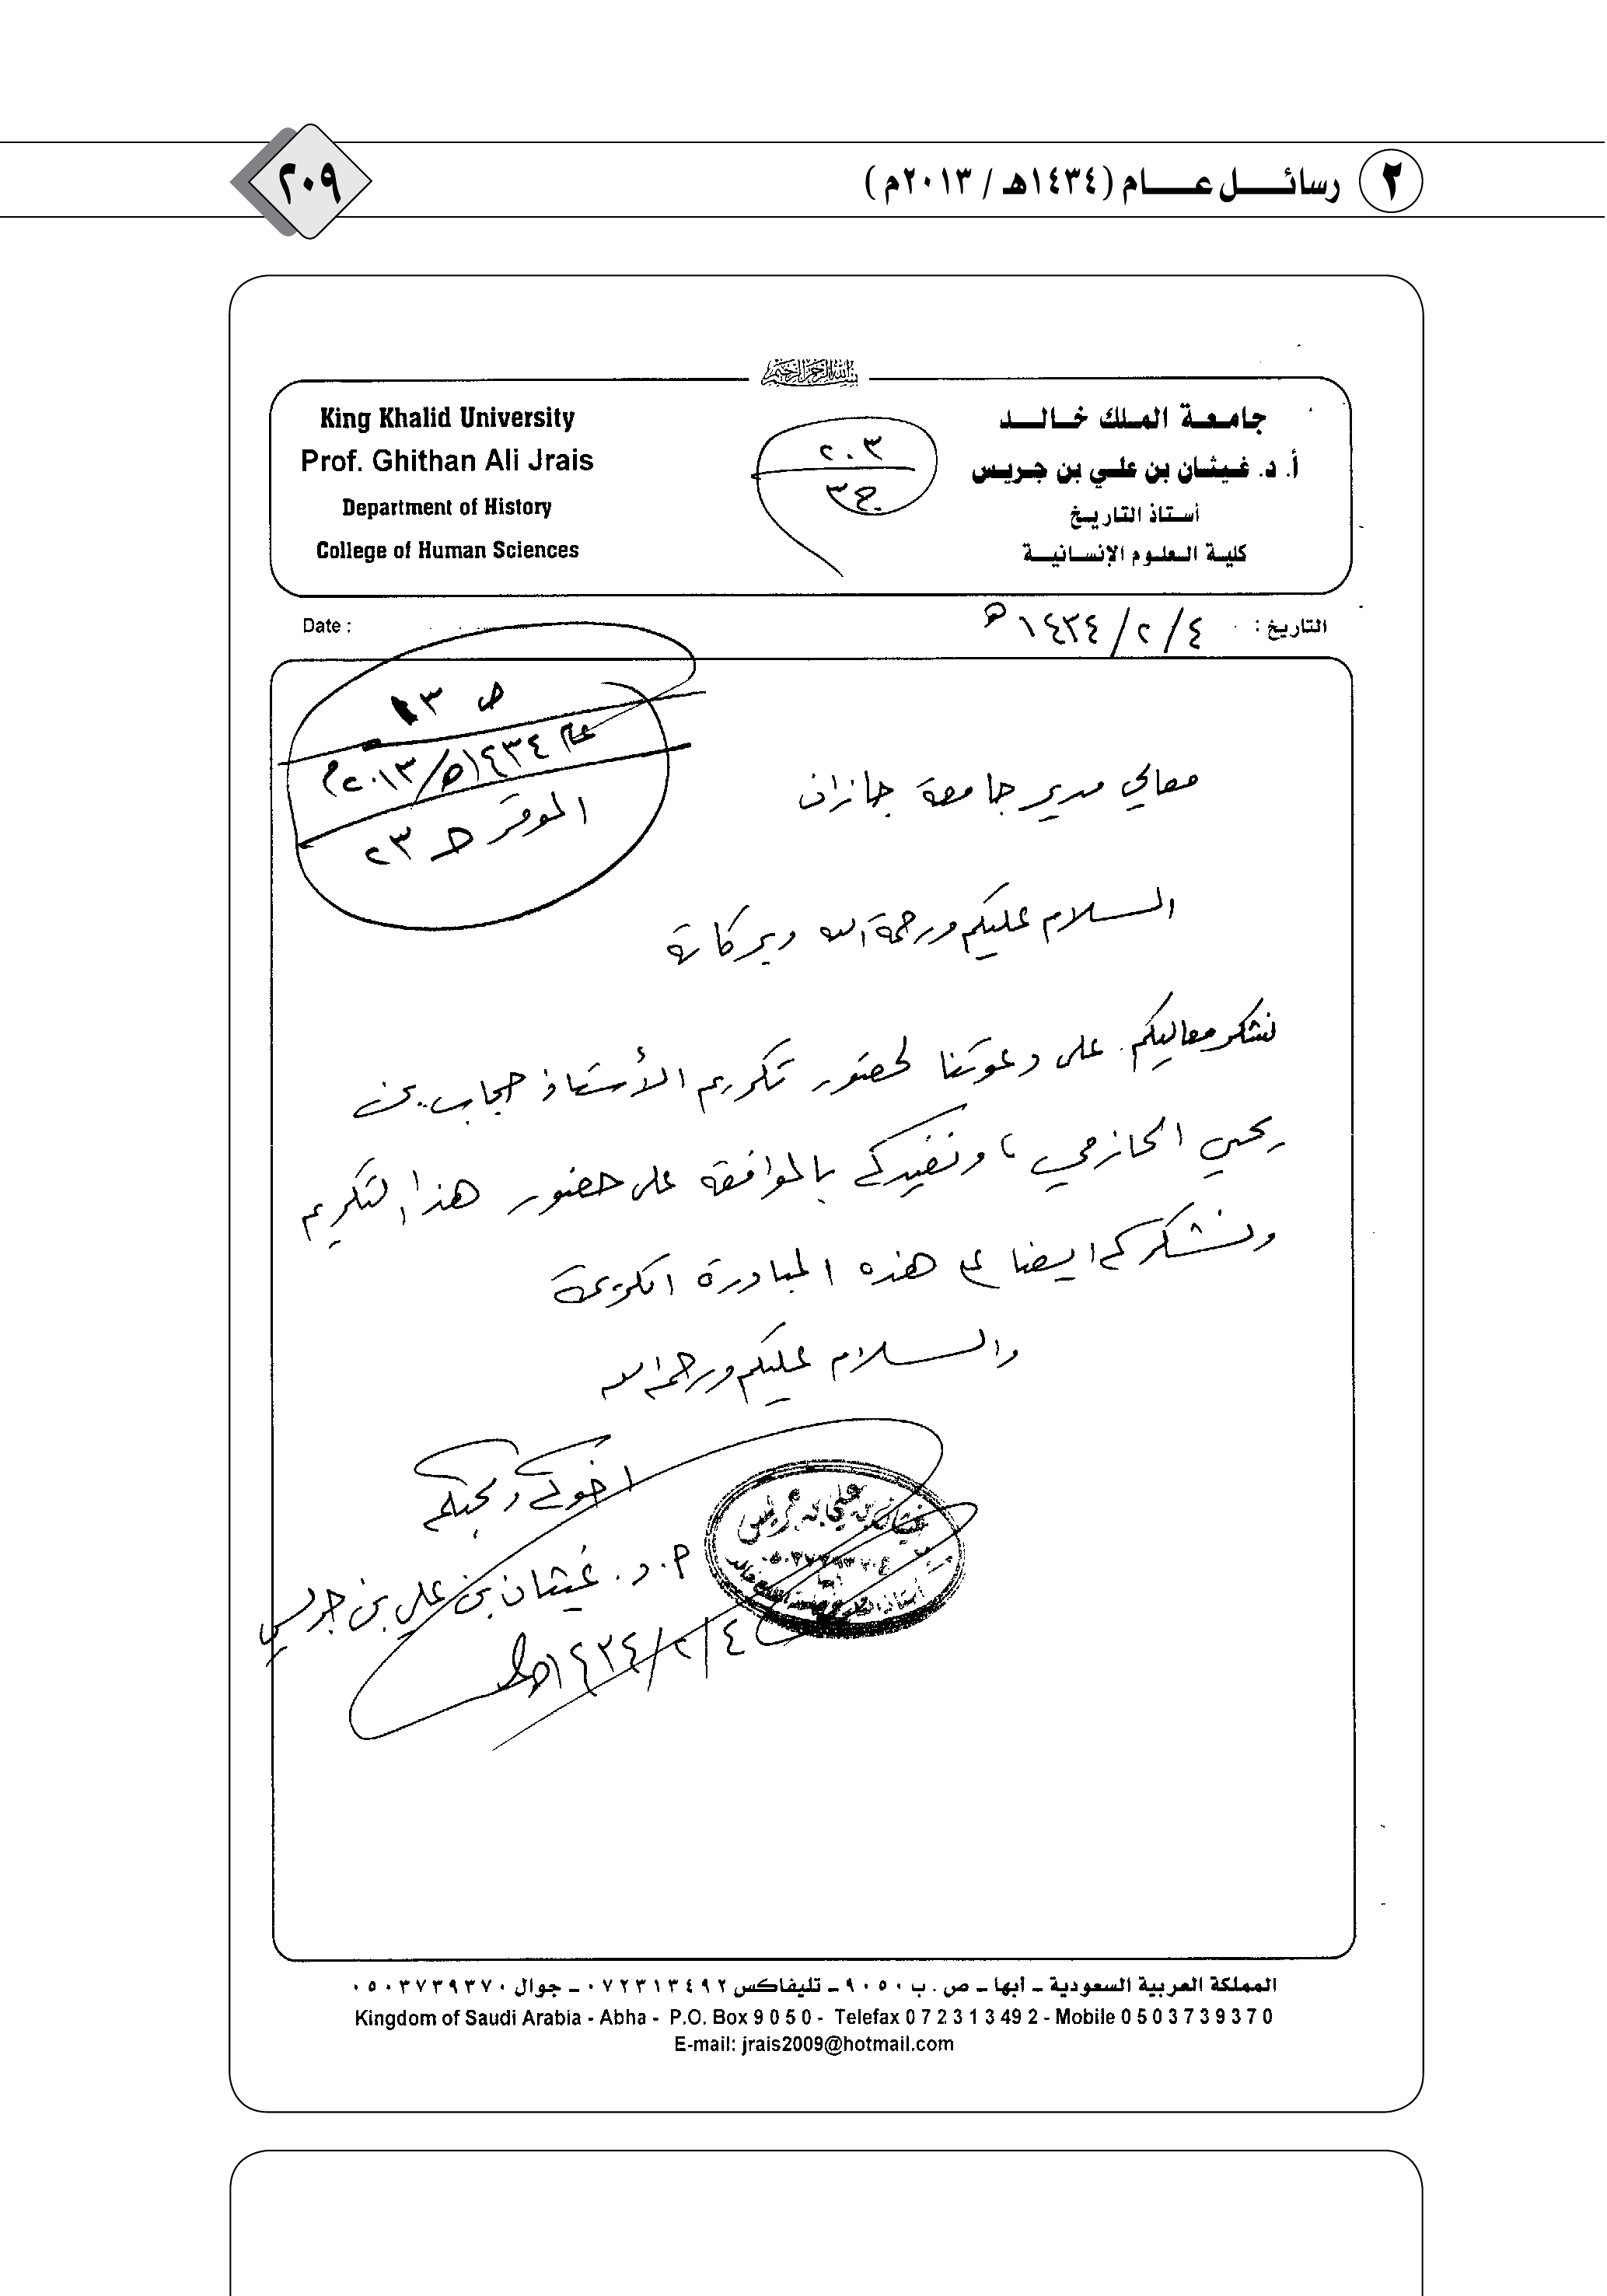 ٢ رسائل عام (١٤٣٤هـ / ٢٠١٣م)
٢٠٩
بسم الله الرحمن الرحيم
جامعة الملك خالد
أ. د. غيثان بن علي بن جريس
أستاذ التاريخ
كلية العلوم الإنسانية
٢٠٣
ج ٣
King Khalid University
Prof. Ghithan Ali Jrais
Department of History
College of Human Sciences
التاريخ : ٤ / ٢ / ١٤٣٤ هـ
Date :
ص ١٣
عام ١٤٣٤هـ / ٢٠١٣م
ج ٢٣
معالي مدير جامعة جازان الموقر
السلام عليكم ورحمة الله وبركاتة
نشكر معاليكم على دعوتنا لحضور تكريم الأستاذ حجاب بن
يحيي الحازمي ، ونفيدكم بالموافقة على حضور هذا التكريم
ونشكركم ايضا على هذه المبادرة الكريمة
والسلام عليكم ورحمة الله
اخوكم ومحبكم
أ. د. غيثان بن علي بن جريس
٤ / ٢ / ١٤٣٤هـ
غيثان بن علي بن جريس
المملكة العربية السعودية ـ أبها ـ ص . ب ٩٠٥٠ ـ تليفاكس ٠٧٢٣١٣٤٩٢ ـ جوال ٠٥٠٣٧٣٩٣٧٠
Kingdom of Saudi Arabia - Abha - P.O. Box 9 0 5 0 - Telefax 0 7 2 3 1 3 49 2 - Mobile 0 5 0 3 7 3 9 3 7 0
E-mail: jrais2009@hotmail.com